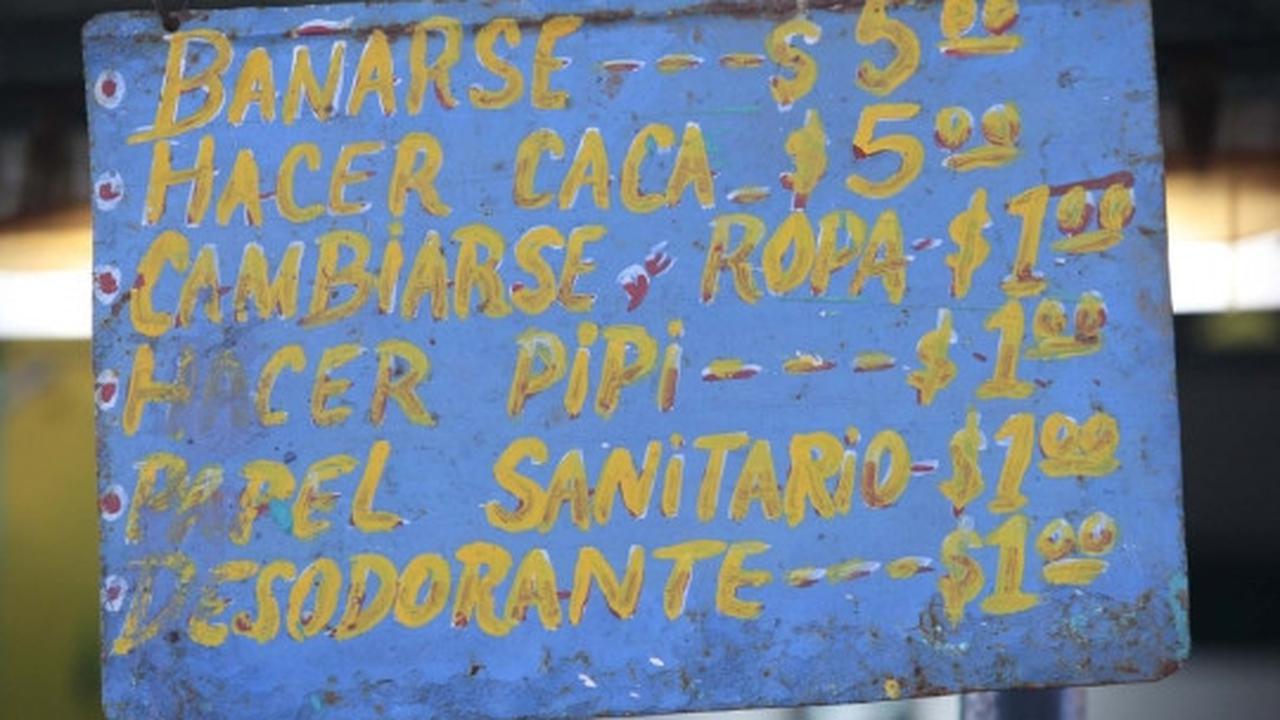 BAÑARSE --- $ 5.00
HACER CACA -- $ 5.00
CAMBIARSE, ROPA - $ 1.00
HACER PiPi --- $ 1.00
PAPEL SANiTARiO - $ 1.00
DESODORANTE --- $ 1.00